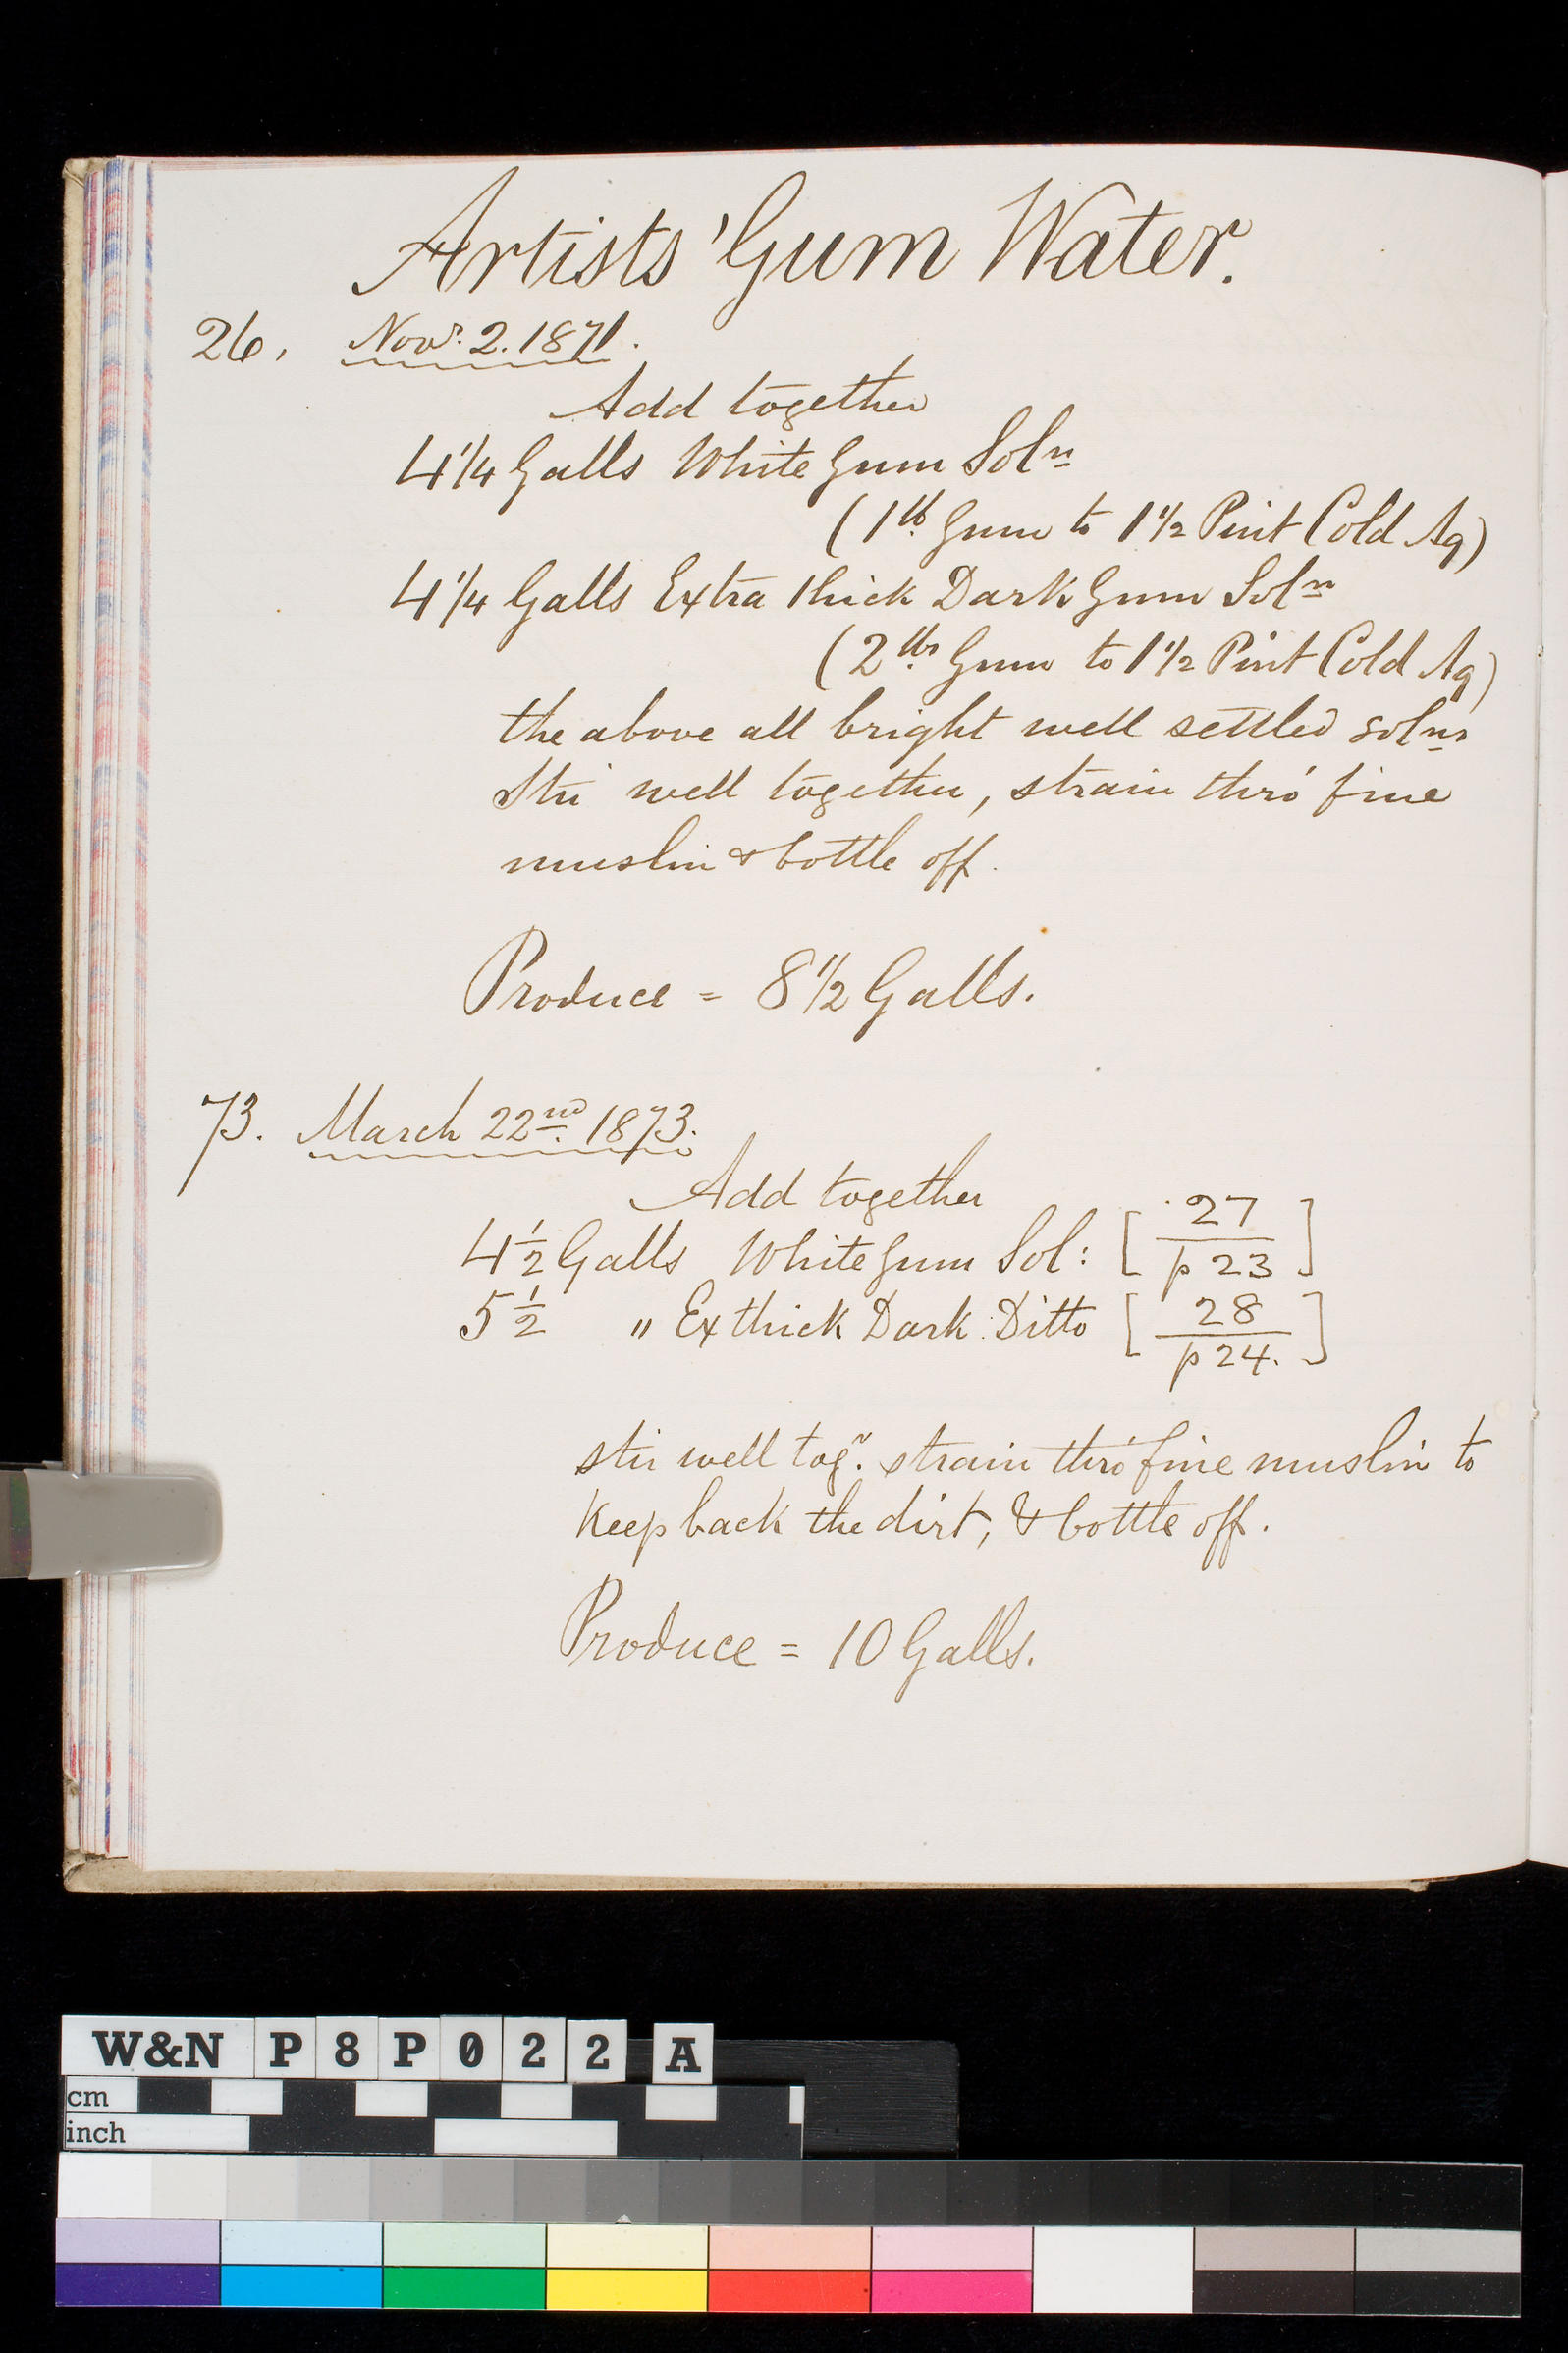 Artists' Gum Water.
26. Novr. 2. 1871.
Add together
4 1/4 Galls White Gum Soln
(1 lb Gum to 1 1/2 Pint Cold Aq)
4 1/4 Galls Extra thick Dark Gum Soln
(2 lbs Gum to 1 1/2 Pint Cold Aq)
the above all bright well settled solns
Stir well together, strain thro' fine
muslin & bottle off.
Produce = 8 1/2 Galls.
73. March 22nd 1873.
Add together
4 1/2 Galls White Gum Sol: [27/p 23]
5 1/2 " Ex thick Dark Ditto [28/p 24.]
stir well togr. strain thro' fine muslin to
keep back the dirt, & bottle off.
Produce = 10 Galls.
W&N P8P022 A
cm
inch